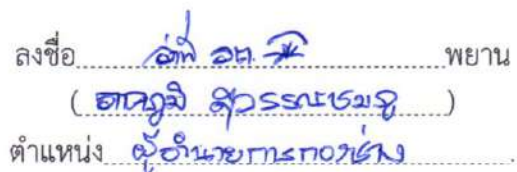 ลงชื่อ ว่าที่ รต. พยาน
( ภาคภูมิ สุวรรณชมภู )
ตำแหน่ง ผู้อำนวยการกองช่าง